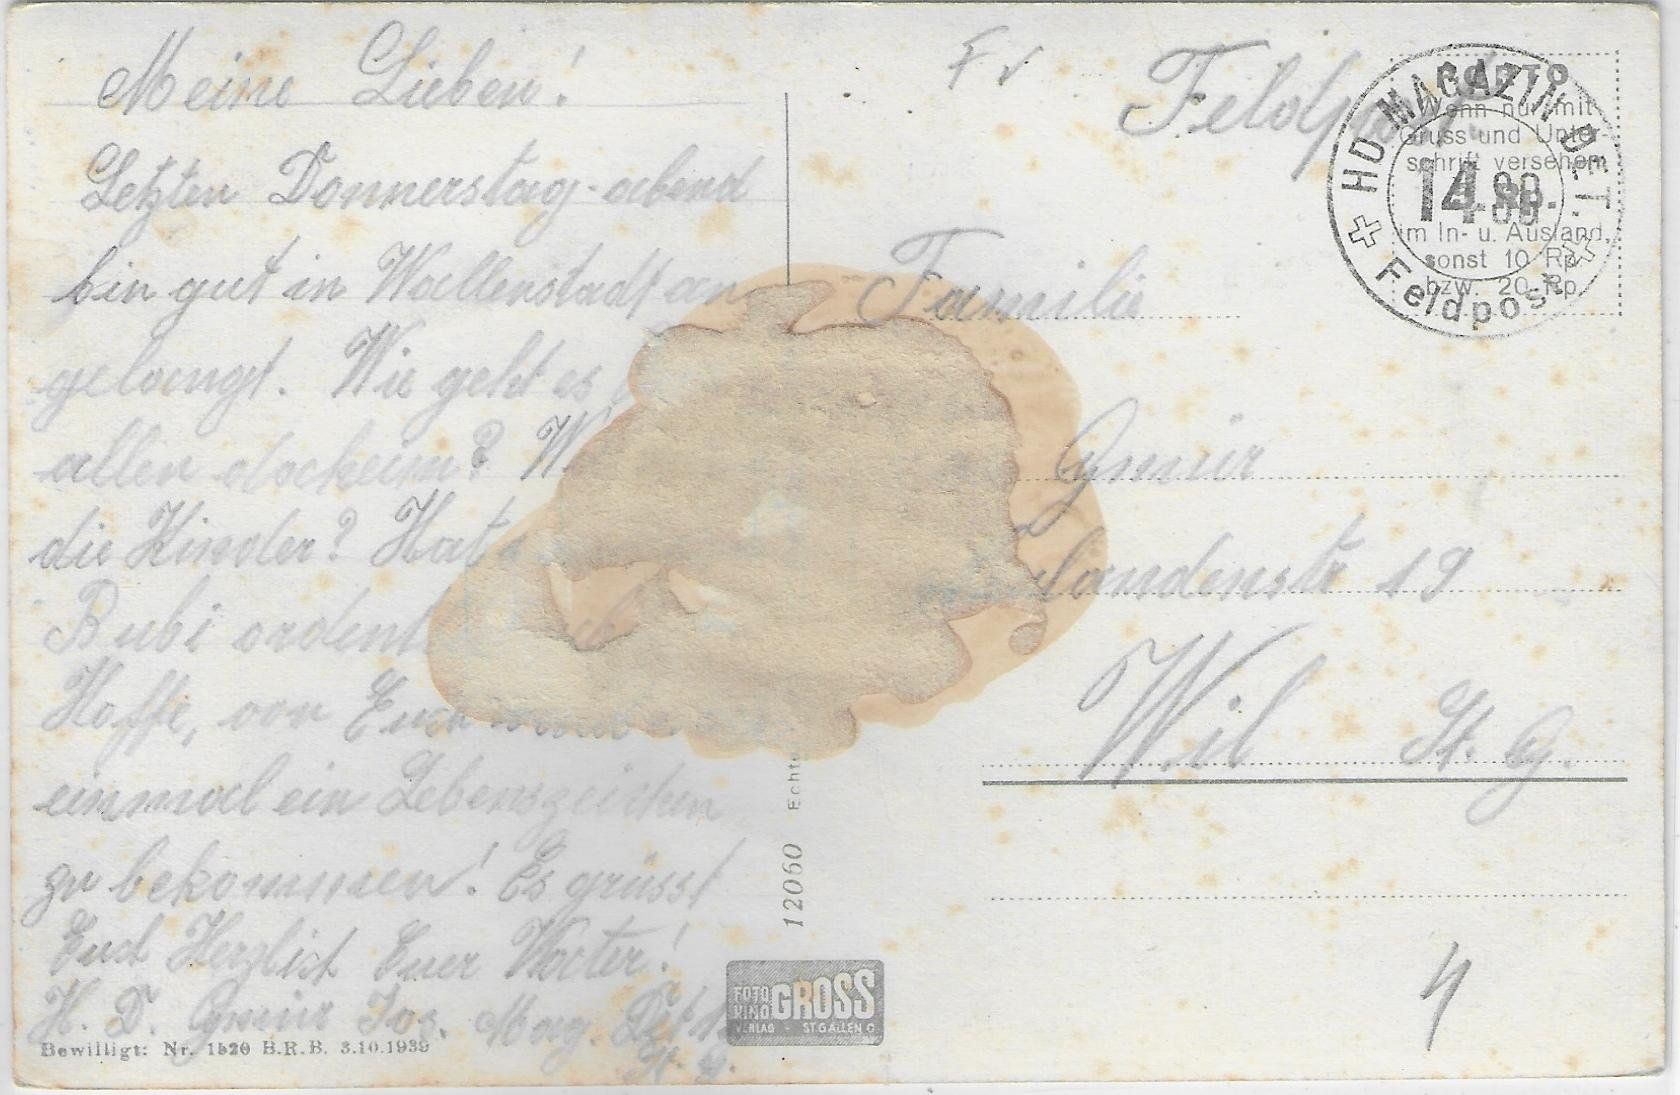 Meine Lieben!
Letzten Donnerstag-abend
bin gut in Wallenstadt an
gelangt. Wie geht es
allen daheim?
die Kinder? Hat
Bubi
Hoffe, von Euch
einmal ein Lebenszeichen
zu bekommen! Es grüsst
Euch Herzlich Euer Vater!
H. D. Gmür Jos. Mag. Det
St. G.
Bewilligt: Nr. 1520 B.R.B. 3.10.1939
12060 Echte
FOTO
KINO
GROSS
VERLAG - ST. GALLEN O
Feldpost
PORTO
Wenn nur mit
Gruss und Unter-
schrift versehen
Rp.
im In- u. Ausland,
sonst 10 Rp.
bzw. 20 Rp.
HD MAGAZIN DET.
14
Feldpost
Familie
Gmür
landenstr 19
Wil St. G.